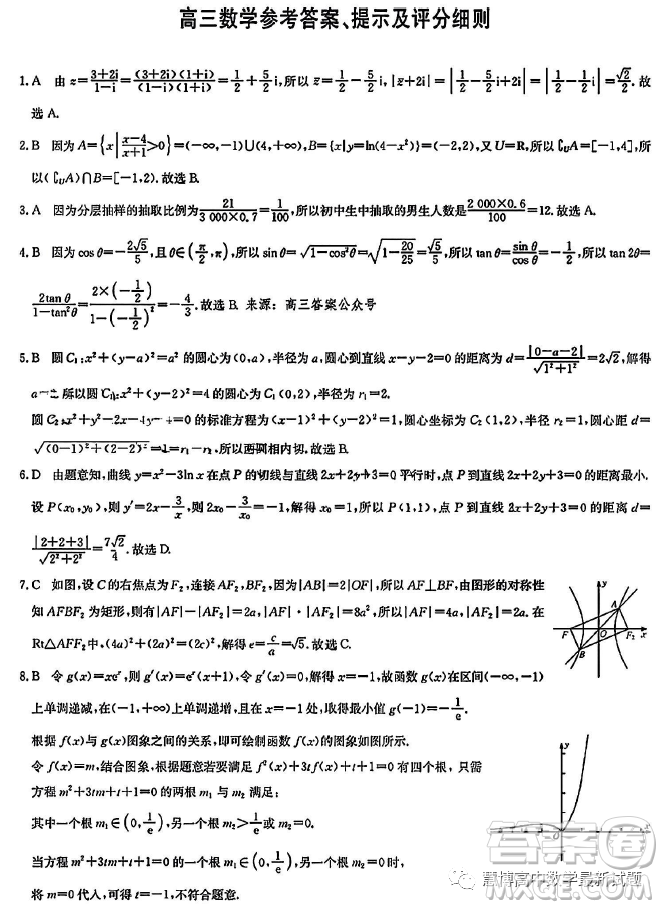 高三数学参考答案、提示及评分细则
1. A 由 z=\frac{3+2i}{1-i}=\frac{(3+2i)(1+i)}{(1-i)(1+i)}=\frac{1}{2}+\frac{5}{2}i,所以 \bar{z}=\frac{1}{2}-\frac{5}{2}i,|\bar{z}+2i|=|\frac{1}{2}-\frac{5}{2}i+2i|=|\frac{1}{2}-\frac{1}{2}i|=\frac{\sqrt{2}}{2}.故
选 A.
2. B 因为 A={x|\frac{x-4}{x+1}>0}=(-∞,-1)∪(4,+∞),B={x|y=ln(4-x²)}=(-2,2),又 U=R,所以∁_UA=[-1,4],所
以(∁_UA)∩B=[-1,2).故选 B.
3. A 因为分层抽样的抽取比例为\frac{21}{3 000×0.7}=\frac{1}{100},所以初中生中抽取的男生人数是\frac{2 000×0.6}{100}=12.故选 A.
4. B 因为 cos θ=-\frac{2\sqrt{5}}{5},且θ∈(\frac{π}{2},π),所以 sin θ=\sqrt{1-cos²θ}=\sqrt{1-\frac{20}{25}}=\frac{\sqrt{5}}{5},所以 tan θ=\frac{sin θ}{cos θ}=-\frac{1}{2},所以 tan 2θ=
\frac{2tan θ}{1-tan²θ}=\frac{2×(-\frac{1}{2})}{1-(-\frac{1}{2})²}=-\frac{4}{3}.故选 B. 来源:高三答案公众号
5. B 圆 C₁:x²+(y-a)²=a² 的圆心为(0,a),半径为 a,圆心到直线 x-y-2=0 的距离为 d=\frac{|0-a-2|}{\sqrt{1²+1²}}=2\sqrt{2},解得
所以圆 C₁:x²+(y-2)²=4 的圆心为 C₁(0,2),半径为 r₁=2.
圆 C₂:x²+y²-2x- =0 的标准方程为(x-1)²+(y-2)²=1,圆心坐标为 C₂(1,2),半径 r₂=1,圆心距 d=
\sqrt{(0-1)²+(2-2)²}=1=r₁-r₂.所以两圆相内切.故选 B.
6. D 由题意知,曲线 y=x²-3ln x 在点 P 的切线与直线 2x+2y+3=0 平行时,点 P 到直线 2x+2y+3=0 的距离最小.
设 P(x₀,y₀),则 y'=2x-\frac{3}{x},则 2x₀-\frac{3}{x₀}=-1,解得 x₀=1,所以 P(1,1),点 P 到直线 2x+2y+3=0 的距离 d=
\frac{|2+2+3|}{\sqrt{2²+2²}}=\frac{7\sqrt{2}}{4}.故选 D.
7. C 如图,设 C 的右焦点为 F₂,连接 AF₂,BF₂,因为|AB|=2|OF|,所以 AF⊥BF,由图形的对称性
知 AFBF₂ 为矩形,则有|AF|-|AF₂|=2a,|AF|·|AF₂|=8a²,所以|AF|=4a,|AF₂|=2a.在
Rt△AFF₂ 中,(4a)²+(2a)²=(2c)²,解得 e=\frac{c}{a}=\sqrt{5}.故选 C.
y
A
F
O
F₂
x
B
8. B 令 g(x)=xeˣ,则 g'(x)=eˣ(x+1),令 g'(x)=0,解得 x=-1,故函数 g(x)在区间(-∞,-1)
上单调递减,在(-1,+∞)上单调递增,且在 x=-1 处,取得最小值 g(-1)=-\frac{1}{e}.
根据 f(x)与 g(x)图象之间的关系,即可绘制函数 f(x)的图象如图所示.
令 f(x)=m,结合图象,根据题意若要满足 f²(x)+3tf(x)+t+1=0 有四个根,只需
方程 m²+3tm+t+1=0 的两根 m₁ 与 m₂ 满足:
其中一个根 m₁∈(0,\frac{1}{e}),另一个根 m₂>\frac{1}{e}或 m₂=0.
y
O
x
当方程 m²+3tm+t+1=0 的一个根 m₁∈(0,\frac{1}{e}),另一个根 m₂=0 时,
将 m=0 代入,可得 t=-1,不符合题意.
慧博高中数学最新试题